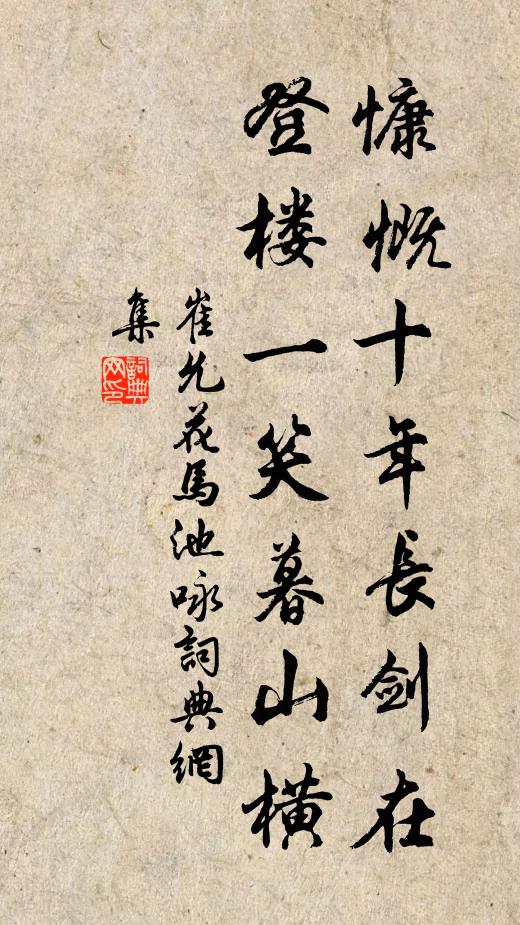 慷慨十年長剑在
登楼一笑暮山横
崔允花馬池咏詞典網
集
詞典
网印